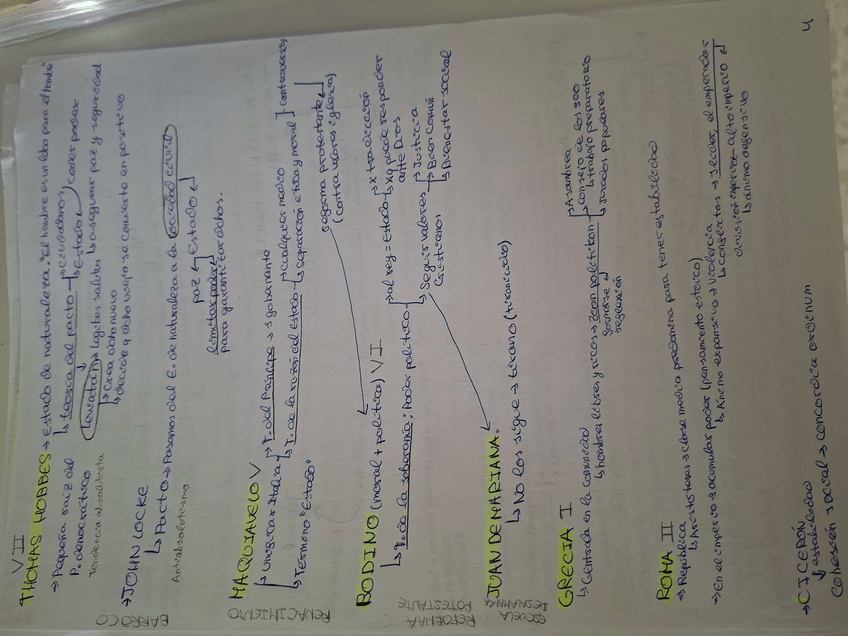 VII
THOMAS HOBBES → Estado de naturaleza: "El hombre es un lobo para el hombre"
→ Pequeña raiz del
P. democrático
Tendencia absolutista
↳ teoría del pacto → Ciudadano
→ Estado ceder poder
Leviatán → Logitos salutis ↳ asegurar paz y seguridad
↳ Crea dcho nuevo
↳ decide q dcho viejo se convierte en positivo
BARROCO
→ JOHN LOCKE
↳ Pacto → Pasamos del E. de naturaleza a la sociedad civil
Antiabsolutismo
paz ← Estado
limitar poder
para garantizar dchos.
RENACIMIENTO
MAQUIAVELO V
↳ Unificar Italia
↳ Término "Estado"
→ T. del Príncipe → gobernante
↳ T. de la razón del Estado → cualquier medio
↳ separación ética y moral
] - controversy
reforma protestante
(contra valores iglesia)
REFORMA
POTESTANTE
BODINO (moral + política) VI
↳ T. de la soberanía: Poder político
→ al rey = Estado → X tradición
→ Xq puede responder
ante Dios
↳ Seguir valores
Cristianos
→ Justicia
→ Bien Común
→ Bienestar social
ESCUELA
DE SALAMANCA
JUAN DE MARIANA.
↳ No los sigue → tirano (tiranicidio)
GRECIA I
↳ Centrada en la comunidad
↳ hombres libres y ricos → Zoon politikon
formarse
reflexión
→ Asamblea
→ Consejo de los 500
↳ trabajo preparatorio
→ Jurados populares
ROMA II
→ República
↳ Aristóteles → clase media predomina para tener estabilidad
→ En el imperio → acumular poder (pensamiento estoico)
↳ Ánimo expansivo → violencia
↳ conseguirlos → lider, el emperador
división imperio - alto imperio
↳ ánimo defensivo
→ CICERÓN
↓ estabilidad
Cohesión social → concordia ordinum
4